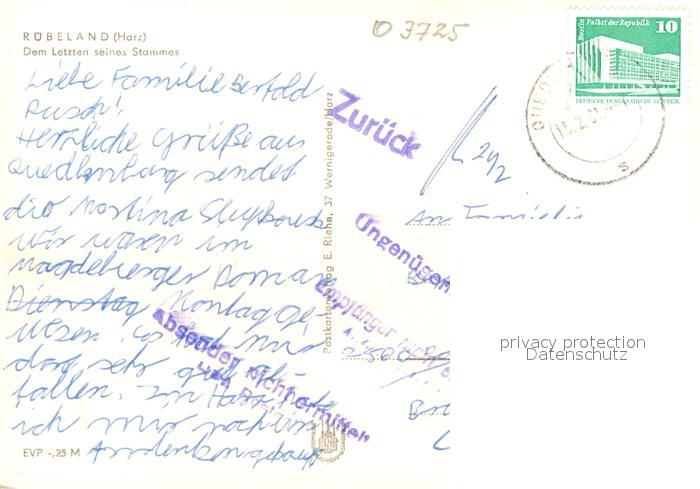 RÜBELAND (Harz)
Dem Letzten seines Stammes
O 3725
Liebe Familie Bertold
Rusch!
Herzliche Grüße aus
Quedlinburg sendet
dir Martina
Wir waren im
Magdeburger Dom am
Dienstag Montag ge-
wesen. es hat mir
dort sehr gut ge-
fallen. Im Harz habe
ich mir noch ein
Andenken gekauft
EVP -,25 M
Postkartenverlag E. Riehn, 37 Wernigerode/Harz
Zurück
Ungenügen
Empfänger
Absender nicht ermittelt
An Familie
Berlin Palast der Republik 10
DEUTSCHE DEMOKRATISCHE REPUBLIK
privacy protection
Datenschutz